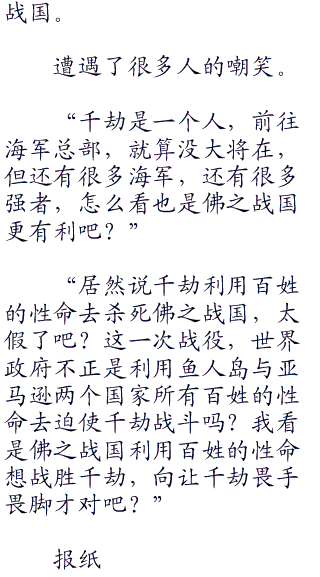 战国。
遭遇了很多人的嘲笑。
“千劫是一个人，前往
海军总部，就算没大将在，
但还有很多海军，还有很多
强者，怎么看也是佛之战国
更有利吧？”
“居然说千劫利用百姓
的性命去杀死佛之战国，太
假了吧？这一次战役，世界
政府不正是利用鱼人岛与亚
马逊两个国家所有百姓的性
命去迫使千劫战斗吗？我看
是佛之战国利用百姓的性命
想战胜千劫，向让千劫畏手
畏脚才对吧？”
报纸